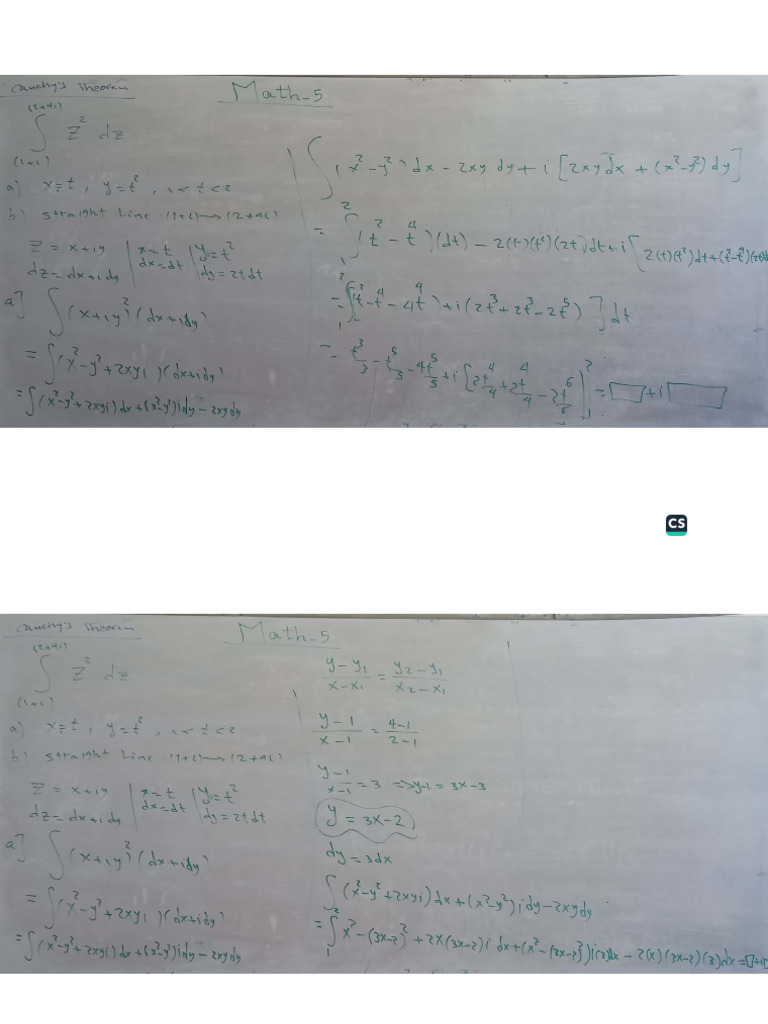 Cauchy's Theorem
Math-5
∫_(1+i)^(2+4i) z² dz
a) x=t, y=t², 1<t<2
b) straight Line (1+i)→(2+4i)
z = x+iy | x=t | y=t²
dz=dx+idy | dx=dt | dy=2tdt
a] ∫(x+iy)²(dx+idy)
=∫(x²-y²+2xyi)(dx+idy)
=∫(x²-y²+2xyi)dx+(x²-y²)idy-2xydy
∫(x²-y²)dx-2xy dy+i[2xydx+(x²-y²)dy]
=∫₁²(t²-t⁴)(dt)-2(t)(t²)(2t)dt+i[2(t)(t²)dt+(t²-t⁴)(2t)dt
=∫₁²[t²-t⁴-4t⁴)+i(2t³+2t³-2t⁵)]dt
= t³/3-t⁵/5-4t⁵/5+i[2t⁴/4+2t⁴/4-2t⁶/6|₁²=□+i□
CS
Cauchy's Theorem
Math-5
∫_(1+i)^(2+4i) z² dz
a) x=t, y=t², 1<t<2
b) straight Line (1+i)→(2+4i)
z = x+iy | x=t | y=t²
dz=dx+idy | dx=dt | dy=2tdt
a] ∫(x+iy)²(dx+idy)
=∫(x²-y²+2xyi)(dx+idy)
=∫(x²-y²+2xyi)dx+(x²-y²)idy-2xydy
(y-y₁)/(x-x₁)=(y₂-y₁)/(x₂-x₁)
(y-1)/(x-1)=(4-1)/(2-1)
(y-1)/(x-1)=3 ⇒y-1=3x-3
y=3x-2
dy=3dx
∫(x²-y²+2xyi)dx+(x²-y²)idy-2xydy
=∫₁²x²-(3x-2)²+2x(3x-2)i dx+(x²-(3x-2)²)i(3)dx-2(x)(3x-2)(3)dx=□+i□